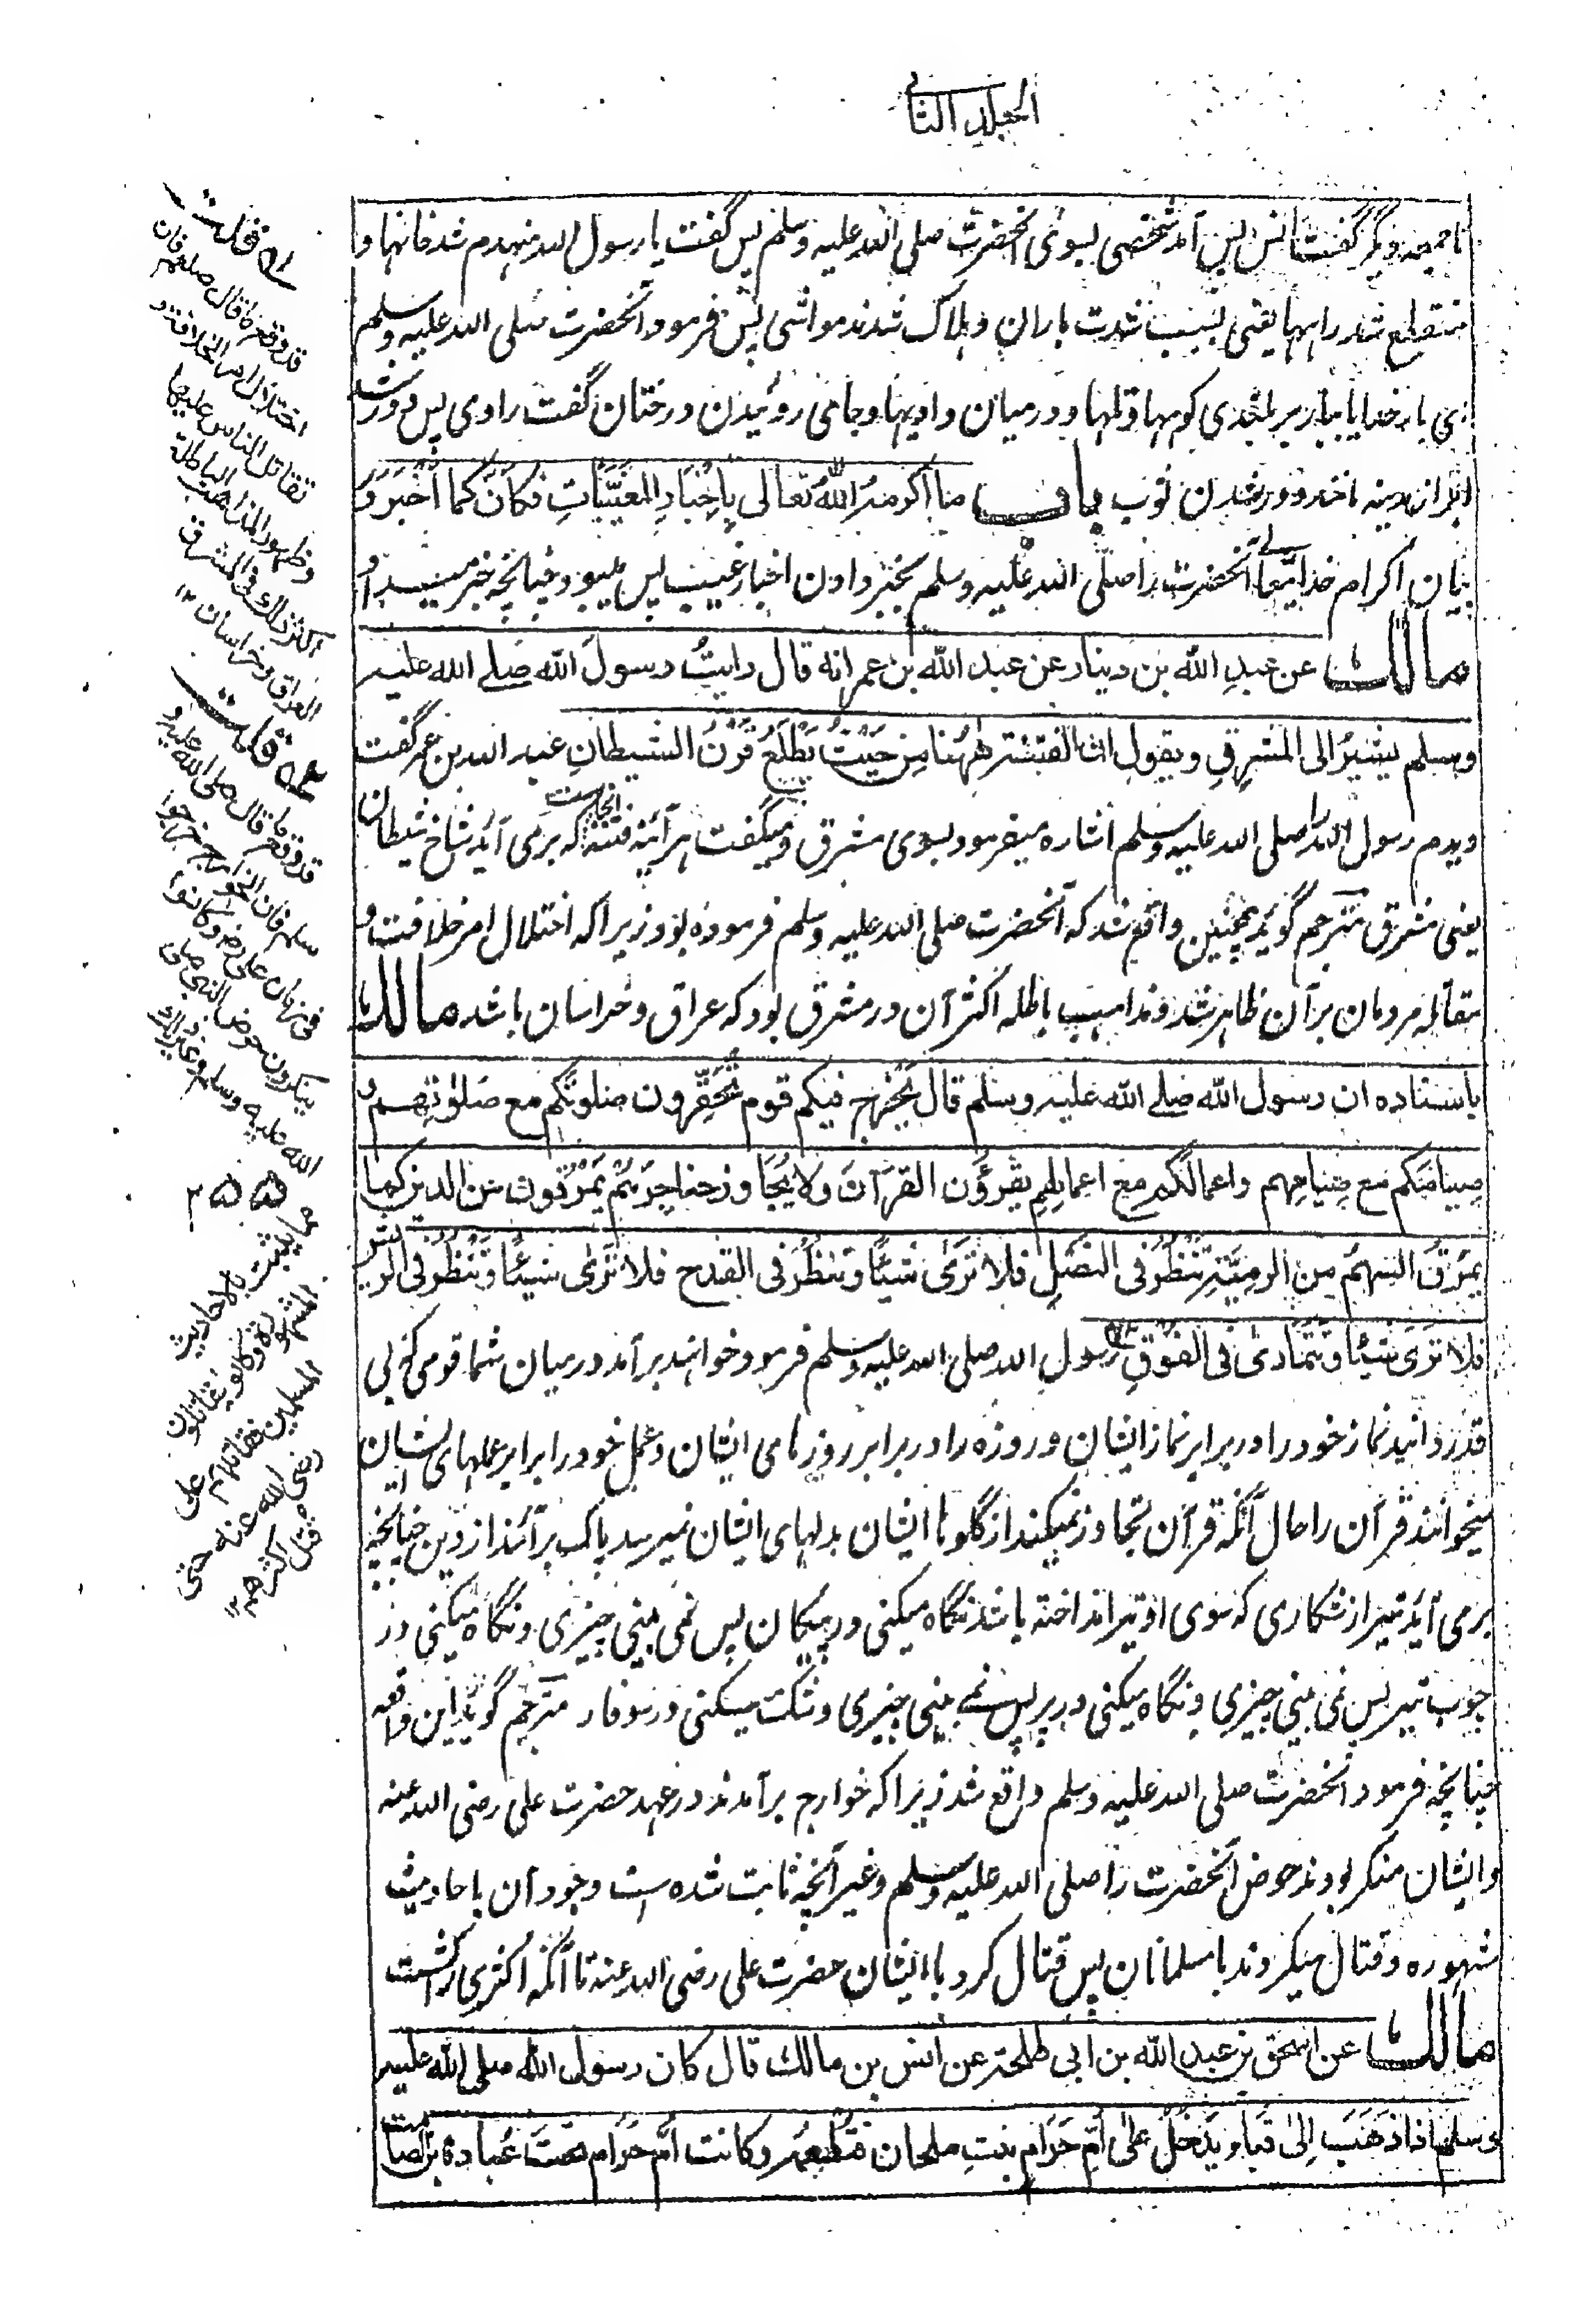 الجلد الثانی
تا جمعه دیگر گفت انس پس آمد شخصی بسوی آنحضرت صلی الله علیه وسلم پس گفت یا رسول الله منهدم شد خانها و
منقطع شد راهها یعنی بسبب شدت باران و هلاک شدند مواشی پس فرمود آنحضرت صلی الله علیه وسلم
ای بار خدایا ببار بر بلندی کوهها و تلها و در میان وادیها و جاهای روئیدن درختان گفت راوی پس دور شد
ابر از مدینه مانند دور شدن ثوب باب ما اکرمه الله تعالی باخبار المغیبات فکان کما اخبر و
بیان اکرام خدایتعالے آنحضرت را صلی الله علیه وسلم بخبر دادن اخبار غیب پس میبود چنانچه خبر میداد
مالك عن عبد الله بن دینار عن عبد الله بن عمر انه قال رایت رسول الله صلے الله علیه
وسلم یشیر الی المشرق ویقول ان الفتنة ههنا من حیث یطلع قرن الشیطان عبد الله بن عمر گفت
دیدم رسول الله را صلی الله علیه وسلم اشاره میفرمود بسوی مشرق و میگفت هر آینه فتنه انجاست که برمی آید شاخ شیطان
یعنی مشرق مترجم گوید همچنین واقع شد که آنحضرت صلی الله علیه وسلم فرموده بود زیرا که اختلال امر خلافت و
مقاتله مردمان بر آن ظاهر شد و مذاهب باطله اکثر آن در مشرق بود که عراق و خراسان باشد مالك
باسناده ان رسول الله صلے الله علیه وسلم قال یخرج فیکم قوم تحقرون صلوتکم مع صلوتهم و
صیامکم مع صیامهم واعمالکم مع اعمالهم یقرؤن القرآن ولا یجاوز حناجرهم یمرقون من الدین کما
یمرق السهم من الرمیة تنظر فی النصل فلا تری شیئا وتنظر فی القدح فلا تری شیئا وتنظر فی الریش
فلا تری شیئا وتتمادی فی الفوق رسول الله صلی الله علیه وسلم فرمود خواهند برآمد در میان شما قومی که بی
قدر دانید نماز خود را در برابر نماز ایشان و روزه را در برابر روزهای ایشان و عمل خود را برابر عملهای ایشان
میخوانند قرآن را حال آنکه قرآن تجاوز نمیکند از گلوها ایشان بدلهای ایشان نمیرسد پاک برآیند از دین چنانچه
برمی آید تیر از شکاری که سوی او تیر انداخته باشد نگاه میکنی در پیکان پس نمی بینی چیزی و نگاه میکنی در
چوب تیر پس نمی بینی چیزی و نگاه میکنی در پر پس نمے بینی چیزی و شک میکنی در سوفار مترجم گوید این واقعه
چنانچه فرمود آنحضرت صلی الله علیه وسلم واقع شد زیرا که خوارج برآمدند در عهد حضرت علی رضی الله عنه
و ایشان منکر بودند حوض آنحضرت را صلی الله علیه وسلم و غیر آنچه ثابت شده است وجود آن باحادیث
مشهوره و قتال میکردند با مسلمانان پس قتال کرد با ایشان حضرت علی رضی الله عنه تا آنکه اکثری را کشت
مالك عن اسحق بن عبد الله بن ابی طلحة عن انس بن مالك قال کان رسول الله صلی الله علیه
وسلم اذا ذهب الی قبا ویدخل علی ام حرام بنت ملحان فتطعمه وکانت ام حرام تحت عبادة بن الصامت
قلت
قد وقع ما قال صلعم فان
اختلال امر الخلافة و
تقاتل الناس علیها
وظهور المذاهب الباطلة
اکثر ذلك فی المشرق
العراق وخراسان ۱۲
قلت
قد وقع ما قال صلی الله علیه و
سلم فان الخوارج خرجوا
فی زمان علی رض وکانوا
ینکرون حوض النبی صلی
الله علیه وسلم وغیر ذلك
مما یثبت بالاحادیث
المشهورة وکانوا یقاتلون
المسلمین فقاتلهم علی
رضی الله عنه حتی
قتل اکثرهم ۱۲